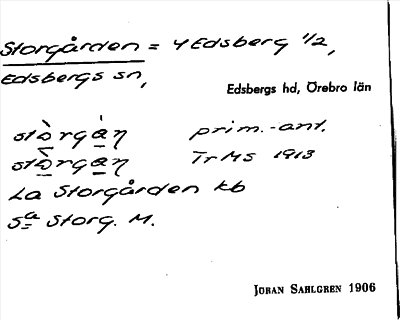 Storgården = 4 Edsberg 1/2,
Edsbergs sn,
Edsbergs hd, Örebro län
stòrgàn prim.-ant.
stòrgan TrMs 1913
La Storgården kb
Sa Storg. M.
Johan Sahlgren 1906